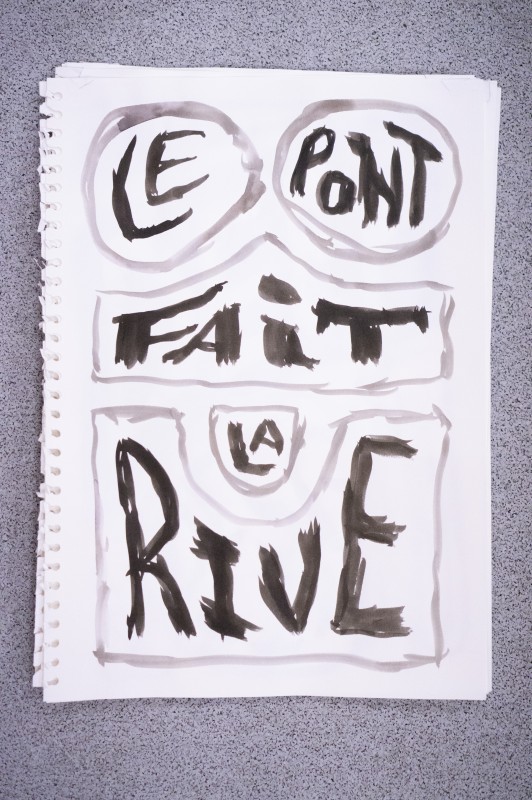 LE PONT
FAiT
LA
RIVE